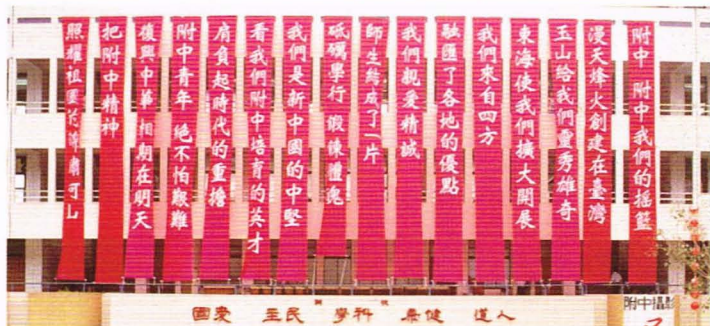 附中 附中我們的搖籃
漫天烽火創建在臺灣
玉山給我們靈秀雄奇
東海使我們擴大開展
我們來自四方
融匯了各地的優點
我們親愛精誠
師生結成了一片
砥礪學行 鍛鍊體魄
我們是新中國的中堅
看我們附中培育的英才
肩負起時代的重擔
附中青年 絕不怕艱難
復興中華 相期在明天
把附中精神
照耀祖國
人道 健康 科學 民主 愛國
附中攝影